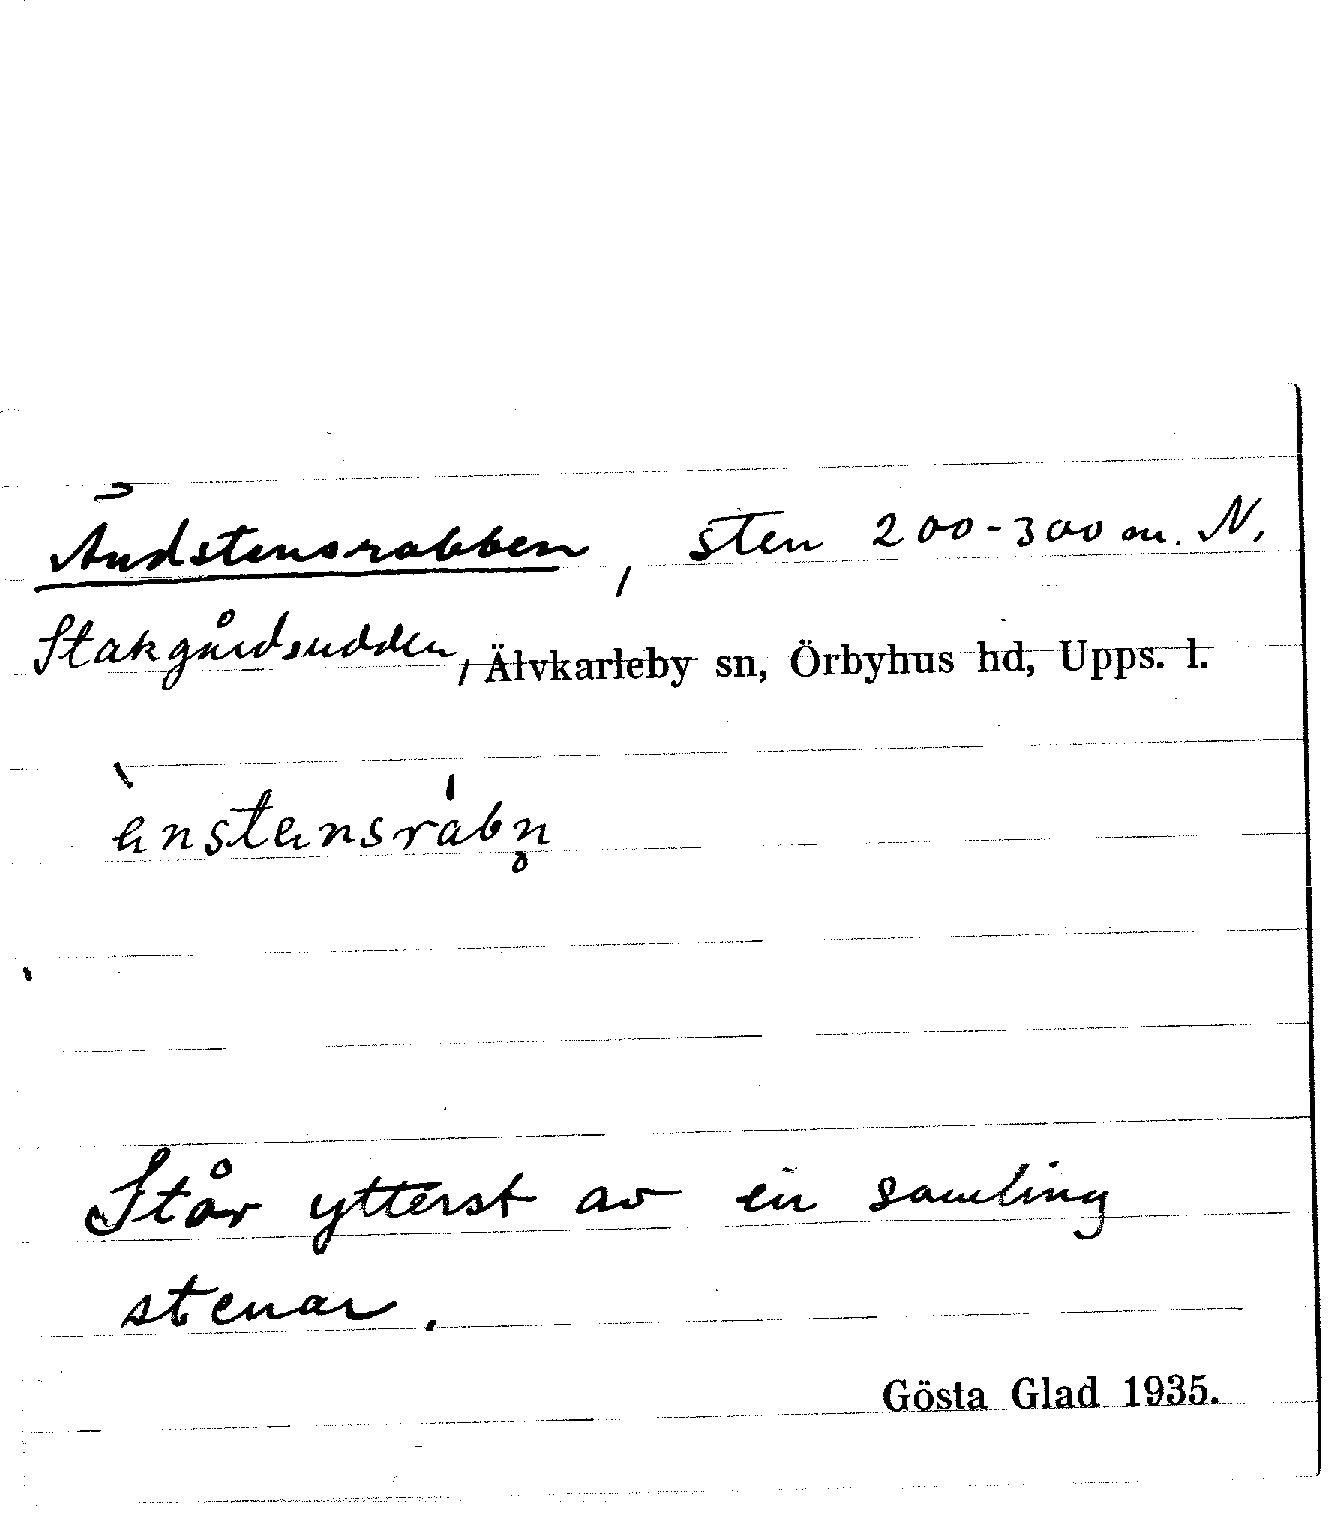 Ändstensrabben, sten 200-300 m. N.
Stakgårdsudden, Älvkarleby sn, Örbyhus hd, Upps. l.
ὲnstensrábn̥
Står ytterst av en samling
stenar.
Gösta Glad 1935.